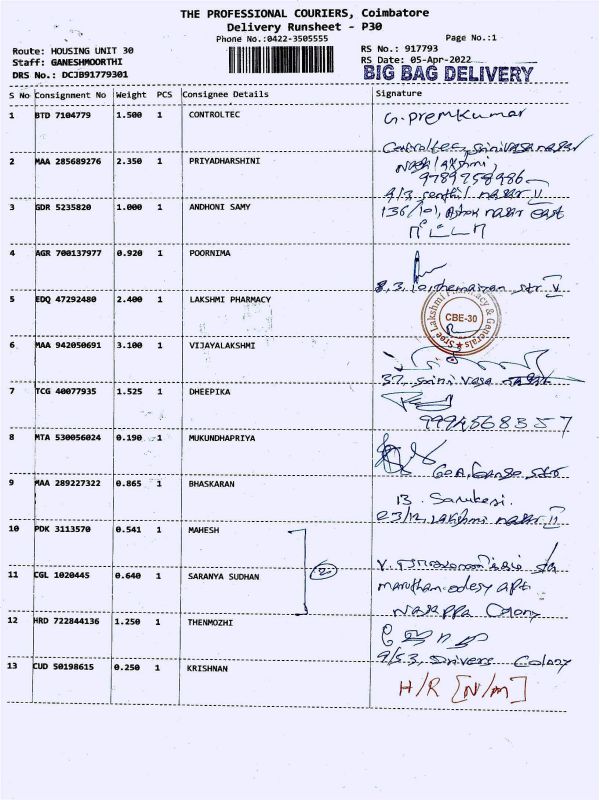 THE PROFESSIONAL COURIERS, Coimbatore
Delivery Runsheet - P30
Phone No.:0422-3505555
Page No.:1
Route: HOUSING UNIT 30
RS No.: 917793
Staff: GANESHMOORTHI
RS Date: 05-Apr-2022
DRS No.: DCJB91779301
BIG BAG DELIVERY
S No Consignment No Weight PCS Consignee Details Signature
1 BTD 7104779 1.500 1 CONTROLTEC G. Premkumar
Controltec, Srinivasa nagar
2 MAA 285689276 2.350 1 PRIYADHARSHINI
9789758986
9/3, Senthil nagar II
3 GDR 5235820 1.000 1 ANDHONI SAMY 136/101, Ashok nagar east
4 AGR 700137977 0.920 1 POORNIMA
str V
5 EDQ 47292480 2.400 1 LAKSHMI PHARMACY
Sree Lakshmi Pharmacy & Generals
CBE-30
6 MAA 942050691 3.100 1 VIJAYALAKSHMI
37, Srinivasa nagar
7 TCG 40077935 1.525 1 DHEEPIKA
9994568357
8 MTA 530056024 0.190 1 MUKUNDHAPRIYA
str
9 MAA 289227322 0.865 1 BHASKARAN B.
23/12, Lakshmi nagar II
10 PDK 3113570 0.541 1 MAHESH
2
11 CGL 1020445 0.640 1 SARANYA SUDHAN apt
Nagappa Colony
12 HRD 722844136 1.250 1 THENMOZHI
9/53, Drivers Colony
13 CUD 50198615 0.250 1 KRISHNAN H/R [N/M]